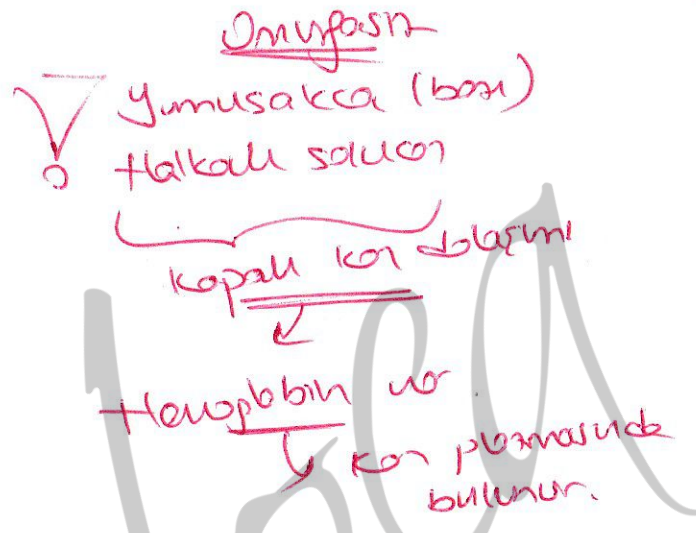 Omurgasız
Yumuşakca (bazı)
Halkalı solucan
kapalı kan dolaşımı
Hemoglobin var
kan plazmasında
bulunur.